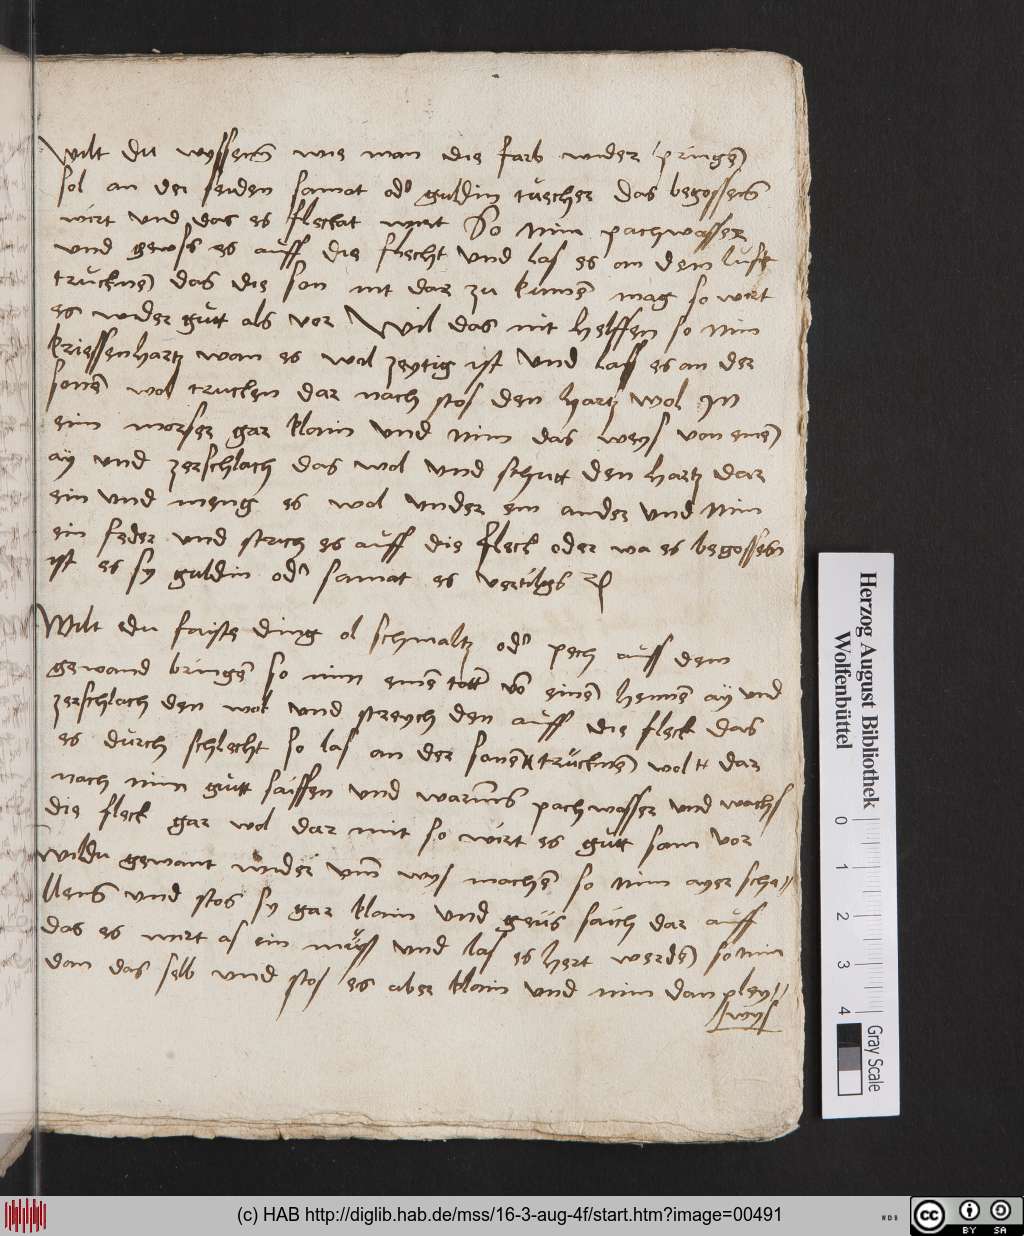 Wilt du wyssens wie man die farb wider pringē
sol an dei seiden samat od' guldin tüecher das begossens
wirt und das es fleckat wirt So nim pachwasser
und gewss es auff die flecht und las es an dem lufft
trucknē das die son nit dar zu kumē mag so wirt
es wider gutt als vor Wil das nit helffen so nim
kriessenhartz wan es wol zeytig ist und lass es an der
sonē wol trucken dar nach stos den hartz wol In
eim morser gar klain und nim das weys von einē
ay und zerschlach das wol und schutt den hartz dar
ein und meng es wol under ein ander und nim
ein feder und strich es auff die fleck oder wa es begossen
ist es sy guldin od' samat es vertilgs
Wilt edu faiste ding ol schmaltz od' pech auss dem
gewand bringē so nim einē totter vō einē hennē ay und
zerschlach den wol und streych den auff die fleck das
es durch schlecht so las an der sonē trucknē wol dar
nach nim gutt saiffen und warms pachwasser und wachs
die fleck gar wol dar mit so wirt es gutt sam vor
Wildu gewant wider um̄ wys machē so nim ayer scha=
llens und stos sy gar klain und geüs sauch dar auff
das es wirt as ein müss und las es hert werdē so nim
dan das selb und stos es aber klain und nim dan pley=
wys
Herzog August Bibliothek
Wolfenbüttel
0 1 2 3 4
Gray Scale
(c) HAB http://diglib.hab.de/mss/16-3-aug-4f/start.htm?image=00491
WDB
cc BY SA